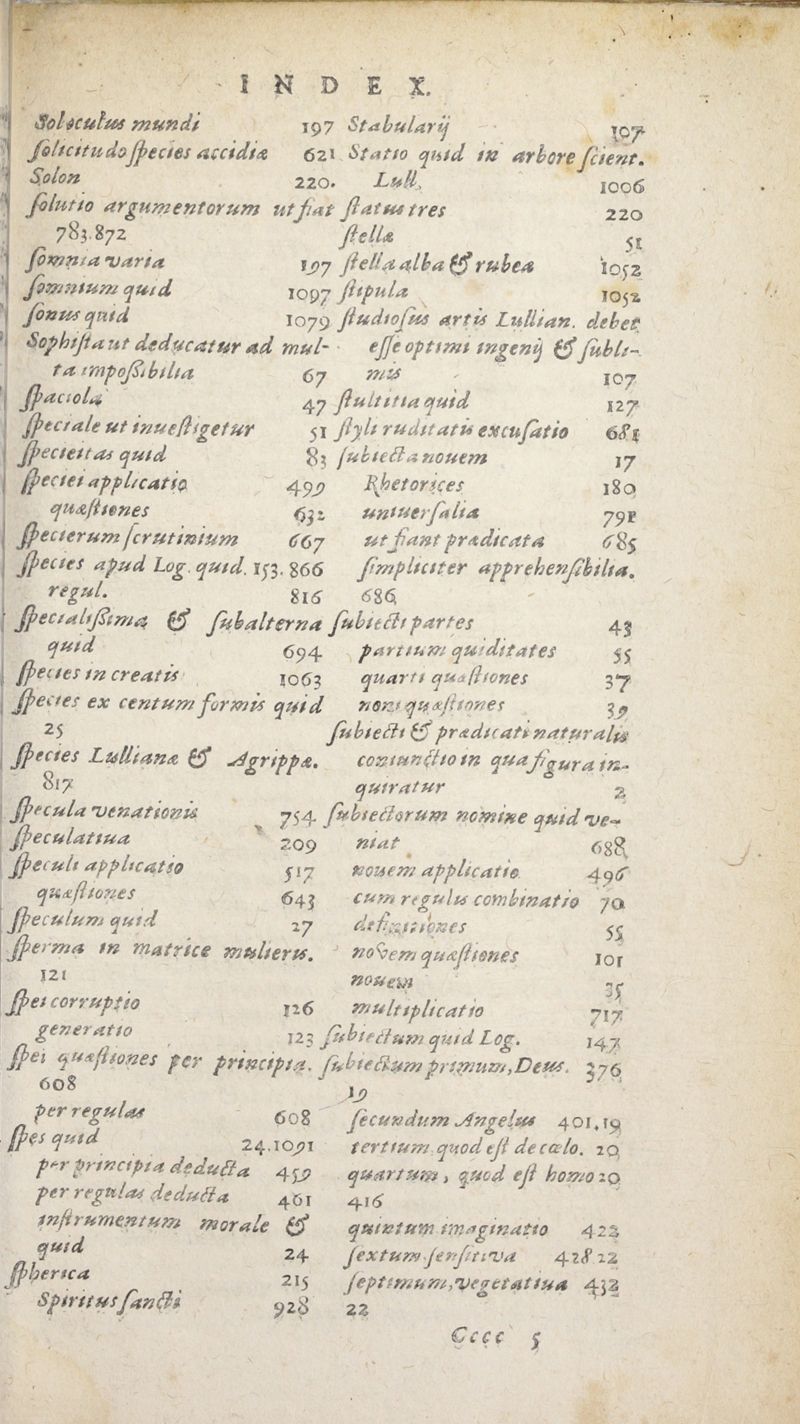 INDEX.
Solœculus mundi 197
ſolicitudo ſpecies accidiæ 621
Solon 220.
ſolutio argumentorum ut fiat
783.872
ſomnia varia 197
ſomnium quid 1097
ſonus quid 1079
Sophiſta ut deducatur ad mul-
ta impoſſibilia 67
ſpaciola 47
ſpeciale ut inueſtigetur 51
ſpecieitas quid 83
ſpeciei applicatio 499
quæſtiones 632
ſpecierum ſcrutinium 667
ſpecies apud Log. quid. 153.866
regul. 816
ſpecialiſſima & ſubalterna
quid 694
ſpecies in creatis 1063
ſpecies ex centum formis quid
25
ſpecies Lulliana & Agrippæ.
817
ſpecula venationis 754
ſpeculatiua 209
ſpeculi applicatio 517
quæſtiones 643
ſpeculum quid 27
ſperma in matrice mulieris.
121
ſpei corruptio 126
generatio 123
ſpei quæſtiones per principia.
608
per regulas 608
ſpes quid 24.1091
per principia deducta 459
per regulas deducta 461
inſtrumentum morale &
quid 24
ſpherica 215
Spiritus ſancti 928
Stabularij 107
Statio quid in arbore ſcient.
Lull. 1006
ſtatus tres 220
ſtella 51
ſtella alba & rubea 1052
ſtipula 1052
ſtudioſus artis Lullian. debet
eſſe optimi ingenij & ſubli-
mis 107
ſtultitia quid 127
ſtyli ruditatis excuſatio 681
ſubiecta nouem 17
Rhetorices 180
uniuerſalia 791
ut fiant prædicata 685
ſimpliciter apprehenſibilia.
686
ſubiecti partes 43
partium quiditates 55
quarti quæſtiones 37
noni quæſtiones 39
ſubiecti & prædicati naturalis
coniunctio in qua figura in-
quiratur 2
ſubiectorum nomine quid ve-
niat 688
nouem applicatio 496
cum regulis combinatio 70
definitiones 55
novem quæſtiones 101
nouem 35
multiplicatio 717
ſubiectum quid Log. 147
ſubiectum primum, Deus. 376
19
ſecundum Angelus 401.19
tertium quod eſt de cœlo. 20
quartum, quod eſt homo 20
416
quintum imaginatio 422
ſextum ſenſitiva 428 22
ſeptimum, vegetatiua 432
22
Cccc 5